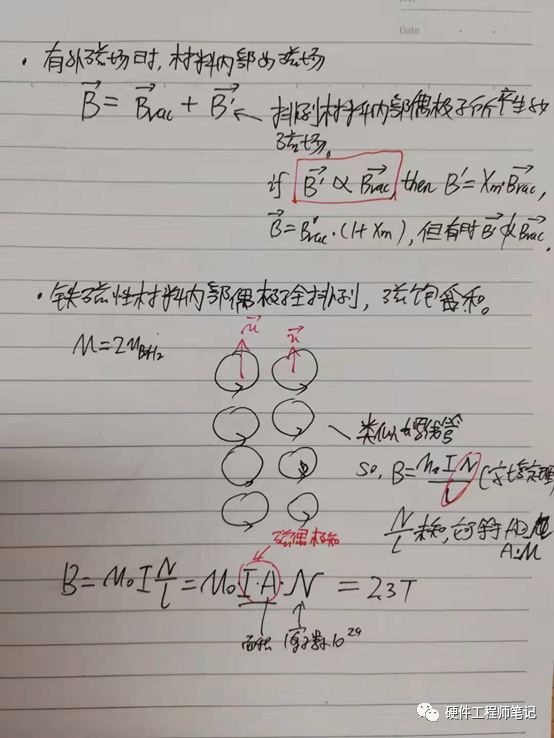 Date
· 有外磁场时, 材料内部的磁场
B = Bvac + B' ← 排列材料内部偶极子所产生的
磁场.
if B' ∝ Bvac, then B' = Xm·Bvac,
B = Bvac·(1+Xm), 但有时 B' ∝ Bvac.
· 铁磁性材料内部偶极子全排列, 磁饱和。
M=2M
类似螺线管
so, B = M₀IN/l
N/l 未知, 它等
磁偶极矩
B = M₀I N/l = M₀ I·A·N = 2.3T
面积 原子数 10²⁹
硬件工程师笔记